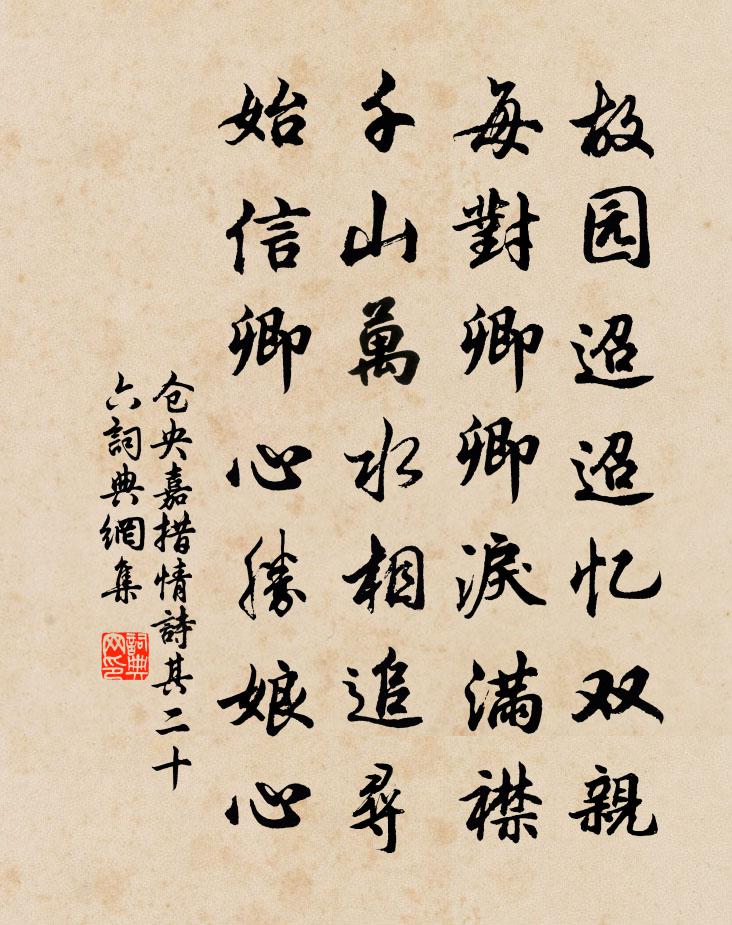 故园迢迢忆双親
每對卿卿淚滿襟
千山萬水相追尋
始信卿心勝娘心
仓央嘉措情詩其二十
六詞典網集
詞典网印